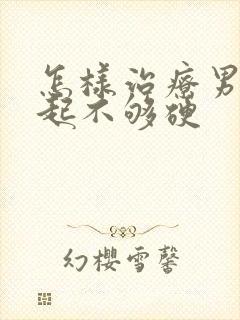 怎樣治療男
起不够硬
幻櫻雪馨